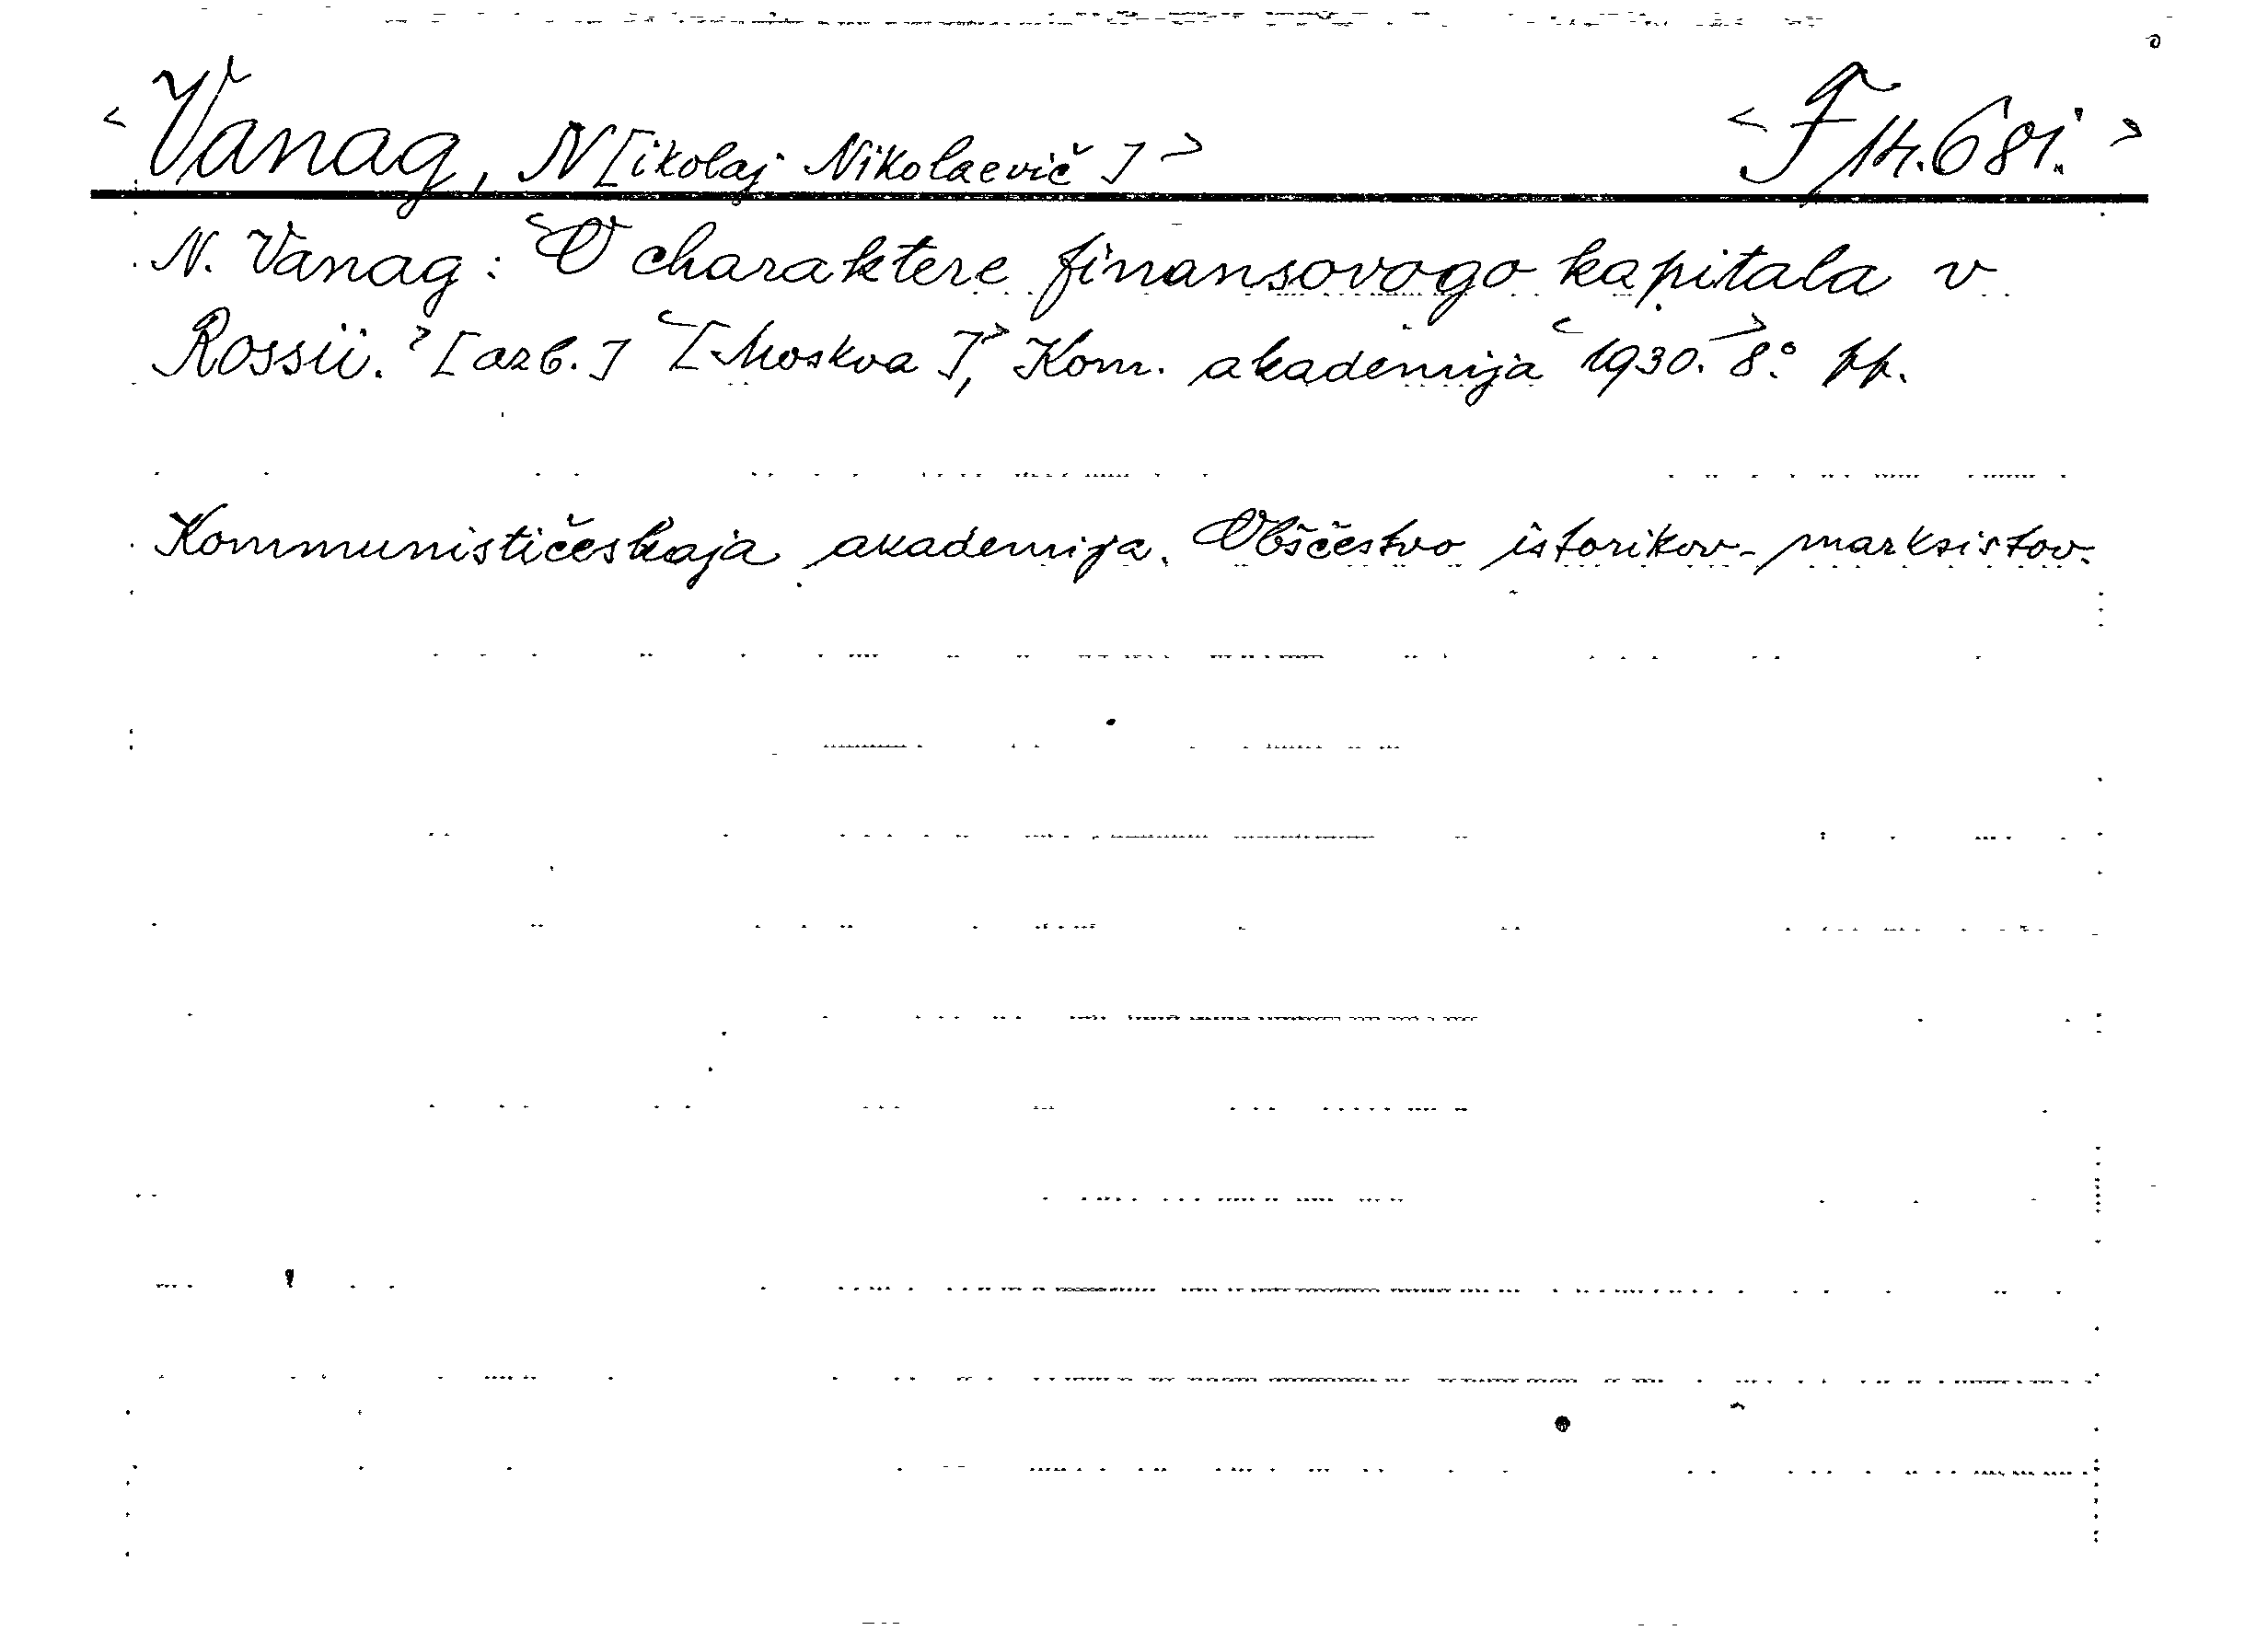 <Vanag, N[ikolaj Nikolaevič]> <F 14.681.>
N. Vanag: <O charaktere finansovogo kapitala v
Rossii.> [azb.] <[Moskva],> Kom. akademija <1930.> 8.° pp.
Kommunističeskaja akademija. Obščestvo istorikov-marksistov.